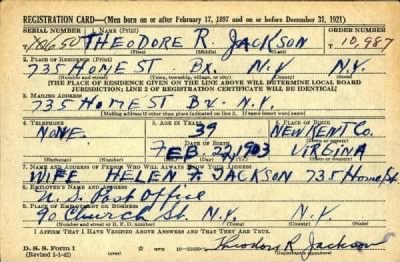 REGISTRATION CARD—(Men born on or after February 17, 1897 and on or before December 31, 1921)
SERIAL NUMBER 1. NAME (Print) ORDER NUMBER
THEODORE R. JACKSON 10,987
(First) (Middle) (Last)
2. PLACE OF RESIDENCE (Print)
735 HOME ST BX. N.Y N.Y.
(Number and street) (Town, township, village, or city) (County) (State)
[THE PLACE OF RESIDENCE GIVEN ON THE LINE ABOVE WILL DETERMINE LOCAL BOARD
JURISDICTION; LINE 2 OF REGISTRATION CERTIFICATE WILL BE IDENTICAL]
3. MAILING ADDRESS
735 HOME ST BX. N.Y.
[Mailing address if other than place indicated on line 2. If same insert word same]
4. TELEPHONE 5. AGE IN YEARS 6. PLACE OF BIRTH
NONE. 39 NEW KENT CO.
DATE OF BIRTH (Town or county)
FEB. 1903 VIRGINIA
(Exchange) (Number) (Mo.) (Day) (Yr.) (State or country)
7. NAME AND ADDRESS OF PERSON WHO WILL ALWAYS KNOW YOUR ADDRESS
WIFE HELEN JACKSON 735 Home St.
8. EMPLOYER'S NAME AND ADDRESS
U.S. Post Office
9. PLACE OF EMPLOYMENT OR BUSINESS
90 Church St. N.Y. N.Y.
(Number and street or R. F. D. number) (Town) (County) (State)
I AFFIRM THAT I HAVE VERIFIED ABOVE ANSWERS AND THAT THEY ARE TRUE.
D. S. S. Form 1
(Revised 1-1-42) GPO
Theodore R. Jackson